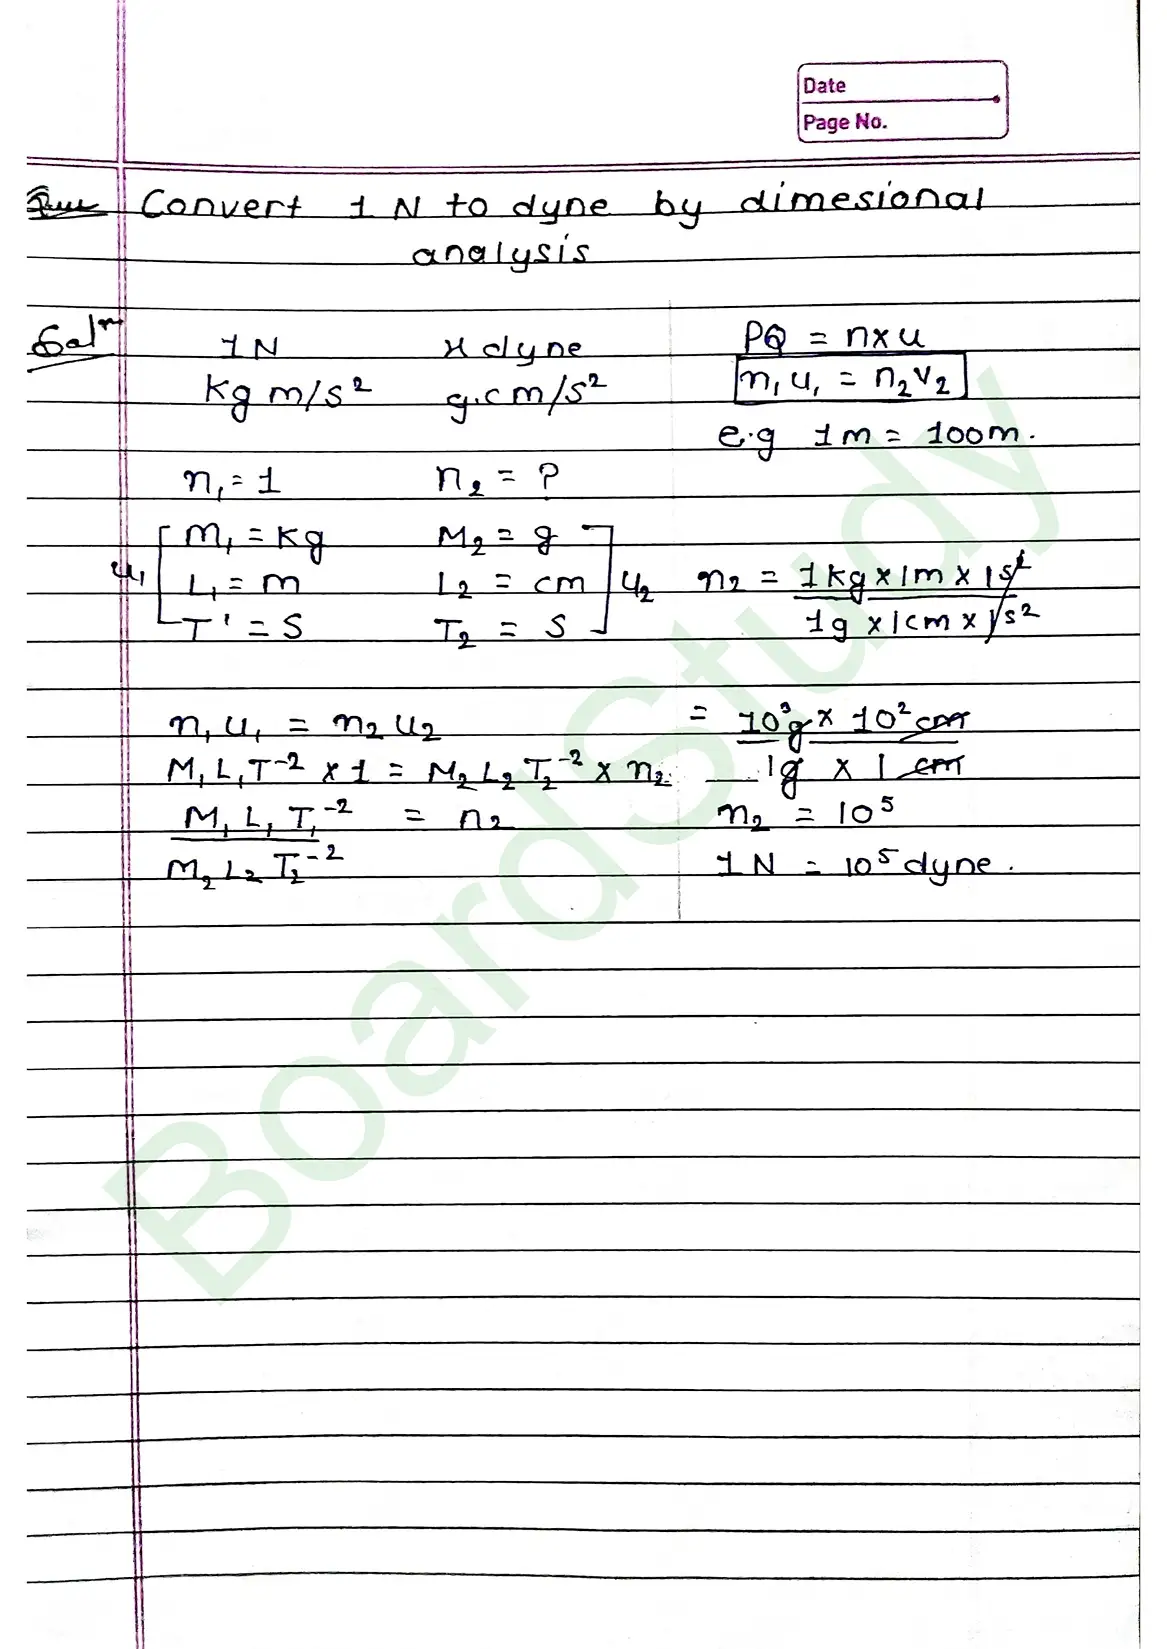 Date
Page No.
Que Convert 1 N to dyne by dimesional
analysis
Solⁿ
1N x dyne
kg m/s² g.cm/s²
n₁ = 1 n₂ = ?
M₁ = kg M₂ = g
u₁ L₁ = m L₂ = cm u₂
T' = S T₂ = S
n₁u₁ = n₂u₂
M₁L₁T⁻² x 1 = M₂L₂T₂⁻² x n₂
M₁L₁T₁⁻² = n₂
M₂L₂T₂⁻²
PQ = nxu
n₁u₁ = n₂v₂
e.g 1m = 100m.
n₂ = 1kg x 1m x 1s²
1g x 1cm x 1/s²
= 10³g x 10² cm
1g x 1 cm
n₂ = 10⁵
1N = 10⁵ dyne.
BoardStudy